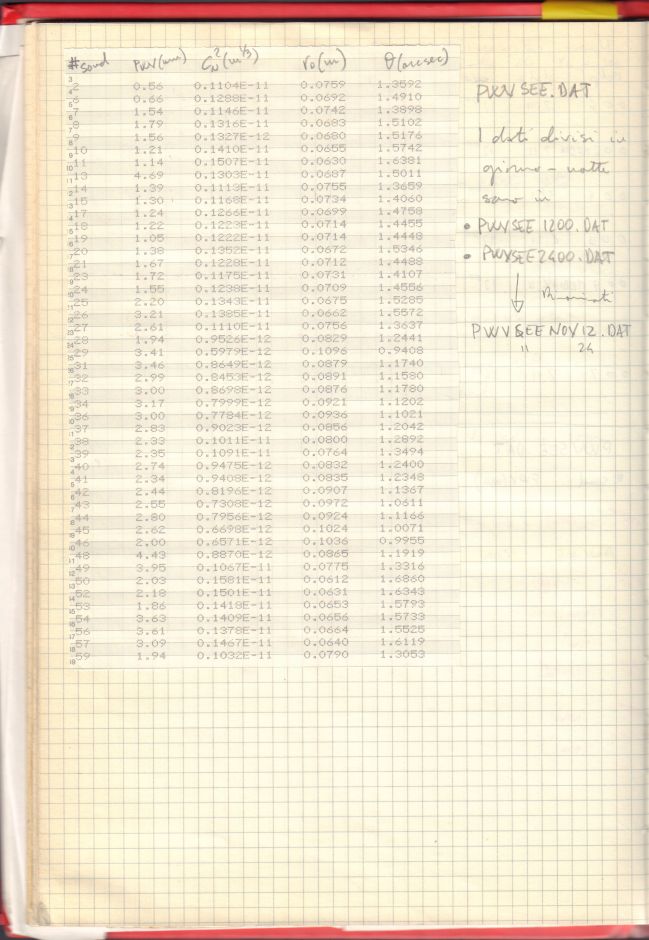 #sond PWV(mm) C_N²(m^1/3) r₀(m) θ(arcsec)
2 0.56 0.1104E-11 0.0759 1.3592
6 0.66 0.1288E-11 0.0692 1.4910
7 1.54 0.1146E-11 0.0742 1.3898
8 1.79 0.1316E-11 0.0683 1.5102
9 1.56 0.1327E-12 0.0680 1.5176
10 1.21 0.1410E-11 0.0655 1.5742
11 1.14 0.1507E-11 0.0630 1.6381
13 4.69 0.1303E-11 0.0687 1.5011
14 1.39 0.1113E-11 0.0755 1.3659
15 1.30 0.1168E-11 0.0734 1.4060
17 1.24 0.1266E-11 0.0699 1.4758
18 1.22 0.1223E-11 0.0714 1.4455
19 1.05 0.1222E-11 0.0714 1.4448
20 1.38 0.1352E-11 0.0672 1.5346
21 1.67 0.1228E-11 0.0712 1.4488
23 1.72 0.1175E-11 0.0731 1.4107
24 1.55 0.1238E-11 0.0709 1.4556
25 2.20 0.1343E-11 0.0675 1.5285
26 3.21 0.1385E-11 0.0662 1.5572
27 2.61 0.1110E-11 0.0756 1.3637
28 1.94 0.9526E-12 0.0829 1.2441
29 3.41 0.5979E-12 0.1096 0.9408
31 3.46 0.8649E-12 0.0879 1.1740
32 2.99 0.8453E-12 0.0891 1.1580
33 3.00 0.8698E-12 0.0876 1.1780
34 3.17 0.7999E-12 0.0921 1.1202
36 3.00 0.7784E-12 0.0936 1.1021
37 2.83 0.9023E-12 0.0856 1.2042
38 2.33 0.1011E-11 0.0800 1.2892
39 2.35 0.1091E-11 0.0764 1.3494
40 2.74 0.9475E-12 0.0832 1.2400
41 2.34 0.9408E-12 0.0835 1.2348
42 2.44 0.8196E-12 0.0907 1.1367
43 2.55 0.7308E-12 0.0972 1.0611
44 2.80 0.7956E-12 0.0924 1.1166
45 2.62 0.6698E-12 0.1024 1.0071
46 2.00 0.6571E-12 0.1036 0.9955
48 4.43 0.8870E-12 0.0865 1.1919
49 3.95 0.1067E-11 0.0775 1.3316
50 2.03 0.1581E-11 0.0612 1.6860
52 2.18 0.1501E-11 0.0631 1.6343
53 1.86 0.1418E-11 0.0653 1.5793
54 3.63 0.1409E-11 0.0656 1.5733
56 3.61 0.1378E-11 0.0664 1.5525
57 3.09 0.1467E-11 0.0640 1.6119
59 1.94 0.1032E-11 0.0790 1.3053
PWVSEE.DAT
I dati divisi in
giorno - notte
sono in
• PWVSEE1200.DAT
• PWVSEE2400.DAT
PWVSEENOV12.DAT
" 24